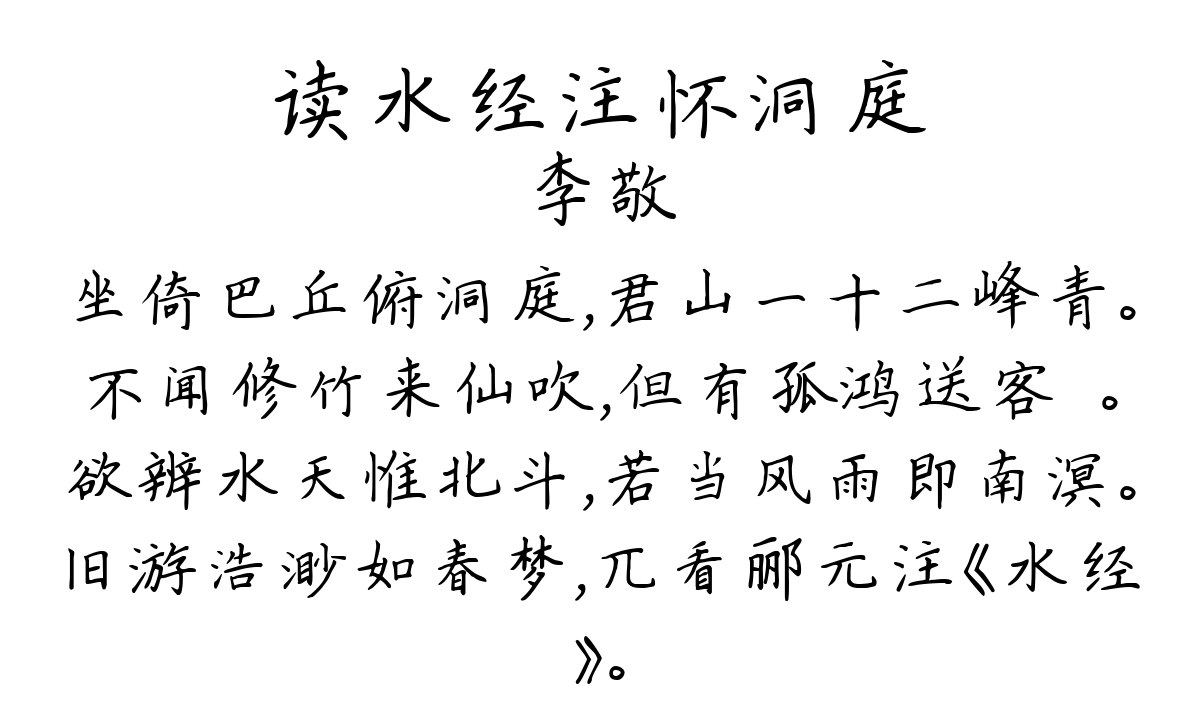 读水经注怀洞庭
李敬
坐倚巴丘俯洞庭,君山一十二峰青。
不闻修竹来仙吹,但有孤鸿送客 。
欲辨水天惟北斗,若当风雨即南溟。
旧游浩渺如春梦,兀看郦元注《水经
》。